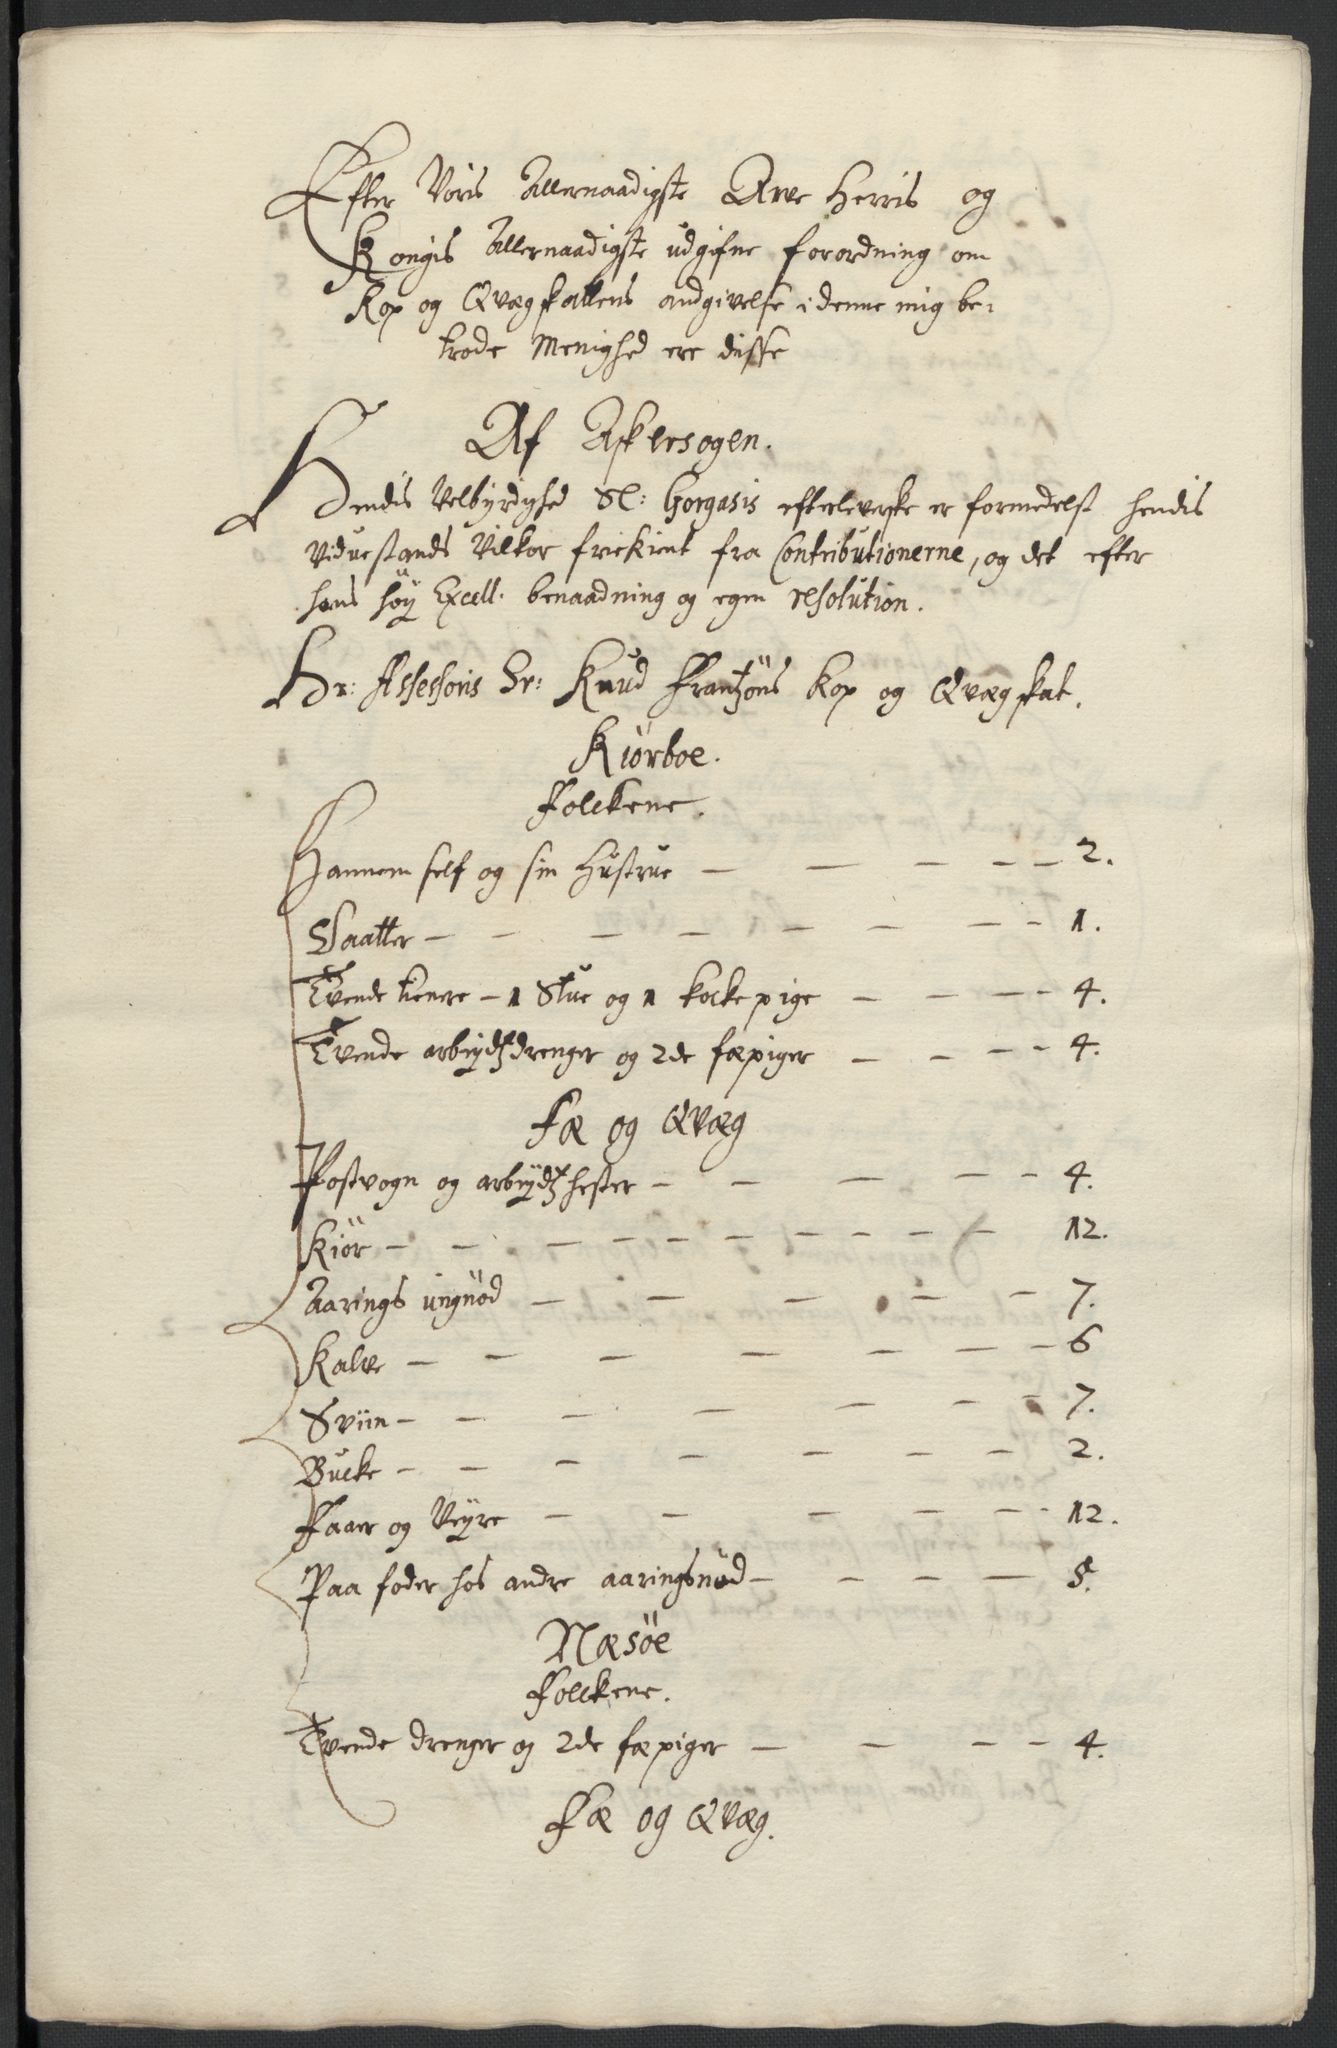 Efter Voris Allernaadigste Arve Herris og
Kongis Allernaadigste udgifne forordning om
Kop og Qvægskattens andgivelse i denne mig be-
trode Menighed ere disse
Af Askersogen.
Hendis Velbyrdighed Sl: Gorgasis efterleverske er formedelst hendis
Viduestands Vilkor friekient fra Contributionerne, og det efter
hans høy Excell. benaadning og egen resolution.
Hr: Assessoris Sr: Knud Frantzöns Kop og Qvægskat.
Kiörboe.
Folckene.
Hannem self og sin Hustrue — — — — — 2.
Daatter — — — — — — — — 1.
Tvende tienere — 1 Stue og 1 kockepige — — — — 4.
Tvende arbeydtzdrenger og 2de fæpiger — — — — 4.
Fæ og Qvæg
Postvogn og arbeydtzhester — — — — — 4.
Kiör — — — — — — — — — — 12.
Aarings ungnöd — — — — — 7.
Kalve — — — — — — — 6
Sviin — — — — — — — 7.
Bucke — — — — — — — 2.
Faaer og Veyre — — — — — — 12.
Paa foder hos andre aaringsnöd — — — — 5.
Næsöe
Folckene.
Tvende drenger og 2de fæpiger — — — — 4.
Fæ og Qvæg.